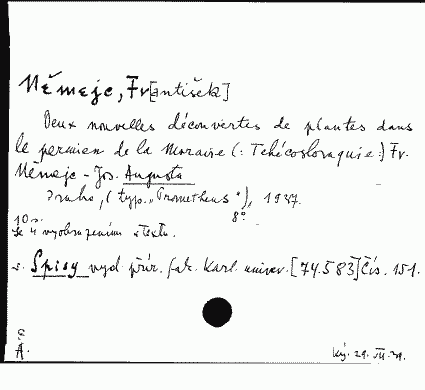 Němejc, Fr[antišek]
Deux nouvelles découvertes de plantes dans
le permien de la Moravie (: Tchécoslovaquie :) Fr.
Němejc - Jos. Augusta
Praha, (typ. „Prometheus"), 1937.
8°.
10 s.
Se 4 vyobrazeními v textu.
v. Spisy vyd. přír. fak. Karl. univer. [74.583] Čís. 151.
A.
29. VII. 39.